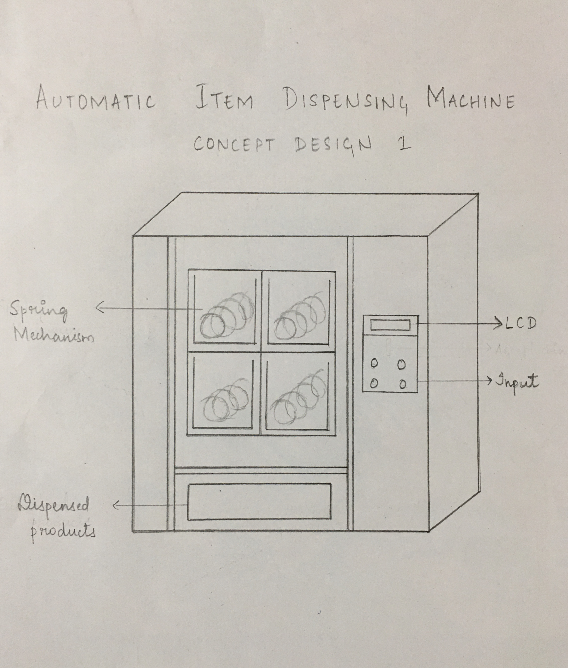 AUTOMATIC ITEM DISPENSING MACHINE
CONCEPT DESIGN 1
Spring
Mechanism
LCD
Input
Dispensed
products